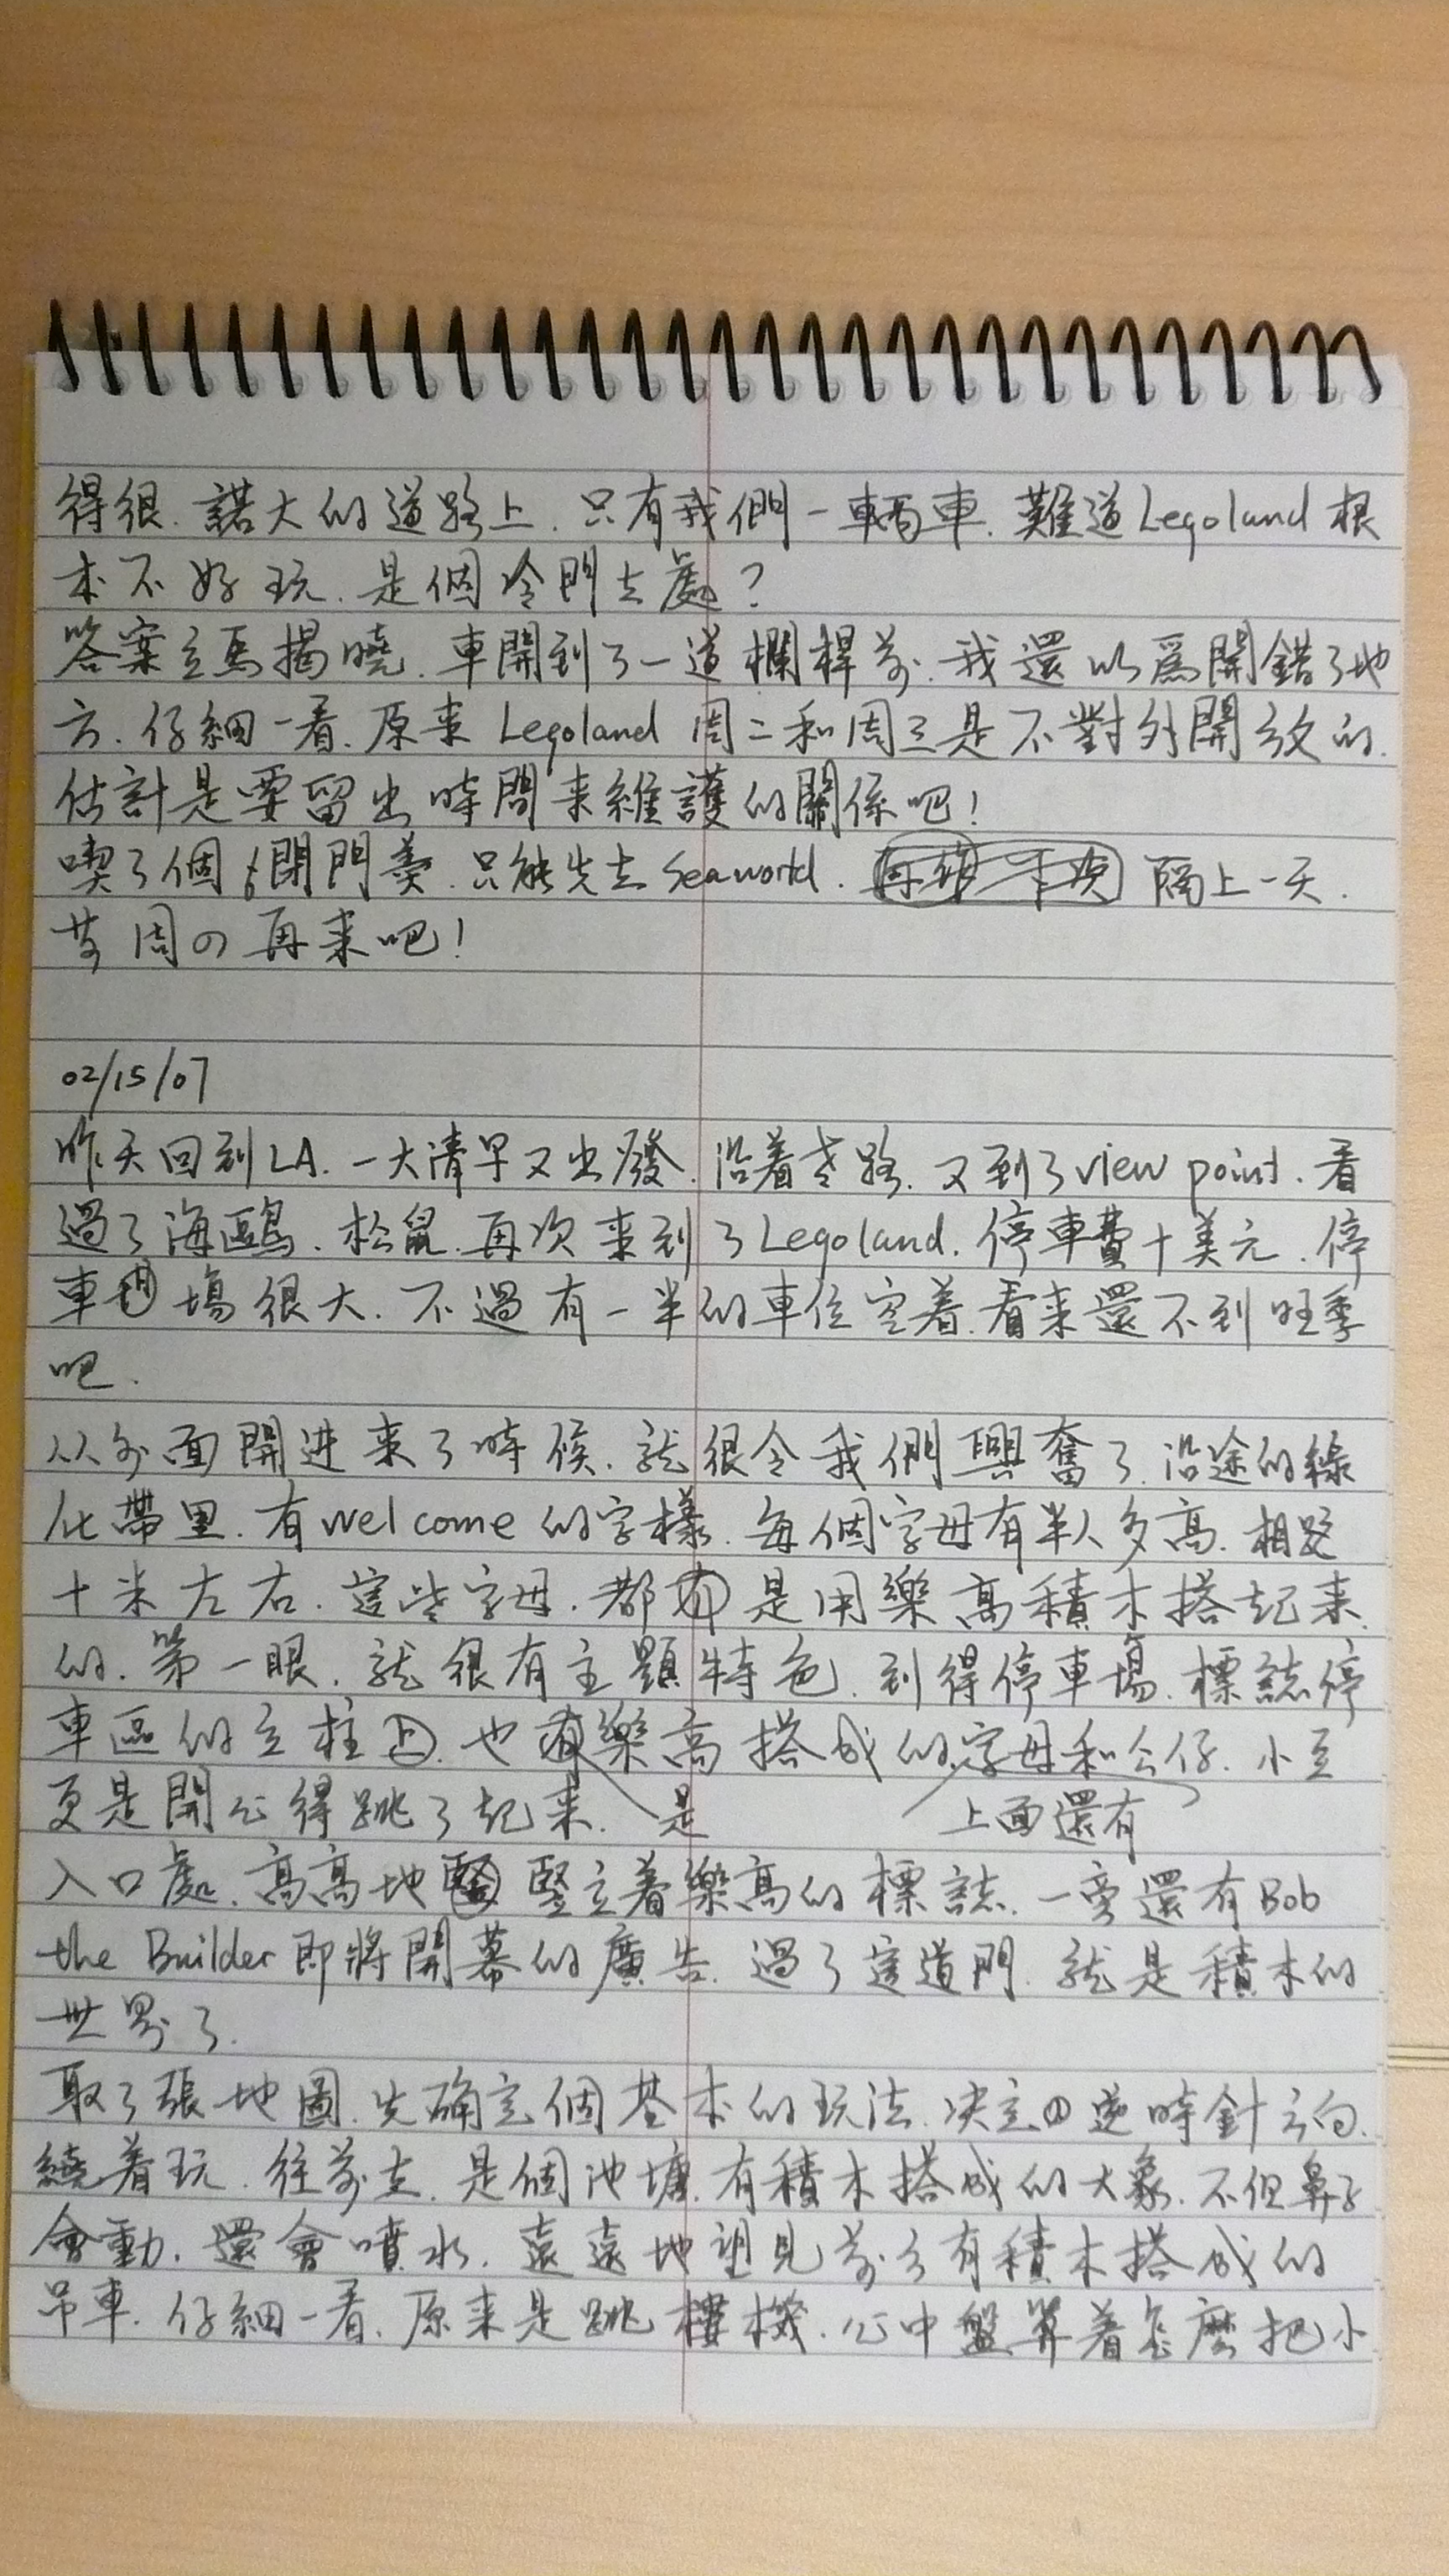 得很.諾大的道路上.只有我們一輛車.難道Legoland根
本不好玩.是個冷門去處?
答案立馬揭曉.車開到了一道欄桿前.我還以爲開錯了地
方.仔細一看.原來Legoland周二和周三是不對外開放的.
估計是要留出時間來維護的關係吧!
喫了個閉門羹.只能先去Seaworld. 隔上一天.
等周四再来吧!
02/15/07
昨天回到LA.一大清早又出發.沿着老路.又到了view point.看
過了海鷗.松鼠.再次來到了Legoland.停車費十美元.停
車場很大.不過有一半的車位空着.看来還不到旺季
吧.
从外面開进来了時候.就很令我們興奮了.沿途的綠
化帶里.有welcome的字樣.每個字母有半人多高.相距
十米左右.這些字母.都是用樂高積木搭起来
的.第一眼.就很有主題特色.到得停車場.標誌停
車區的立柱.也樂高搭成的.字母和公仔.小豆
更是開心得跳了起来. 是 上面還有
入口處.高高地豎立着樂高的標誌.一旁還有Bob
the Builder即將開幕的廣告.過了這道門.就是積木的
世界了.
取了張地圖.先确定個基本的玩法.决定逆時針方向.
繞着玩.往前走.是個池塘.有積木搭成的大象.不但鼻子
會動.還會噴水.遠遠地望見前方有積木搭成的
吊車.仔細一看.原来是跳樓機.心中盤算着怎麽把小